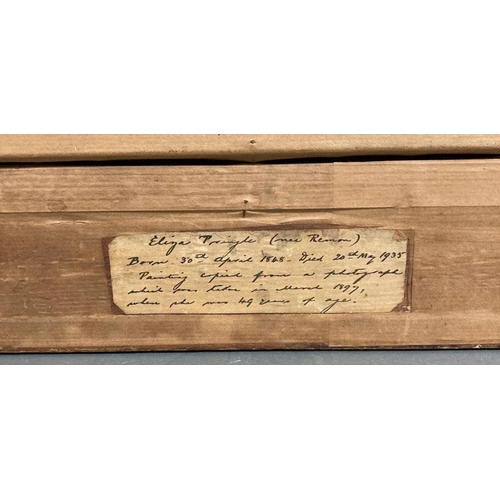 Eliza Pringle (nee Remon)
Born 30th April 1848. Died 20th May 1935
Painting copied from a photograph
which was taken in March 1897,
when she was 49 years of age.